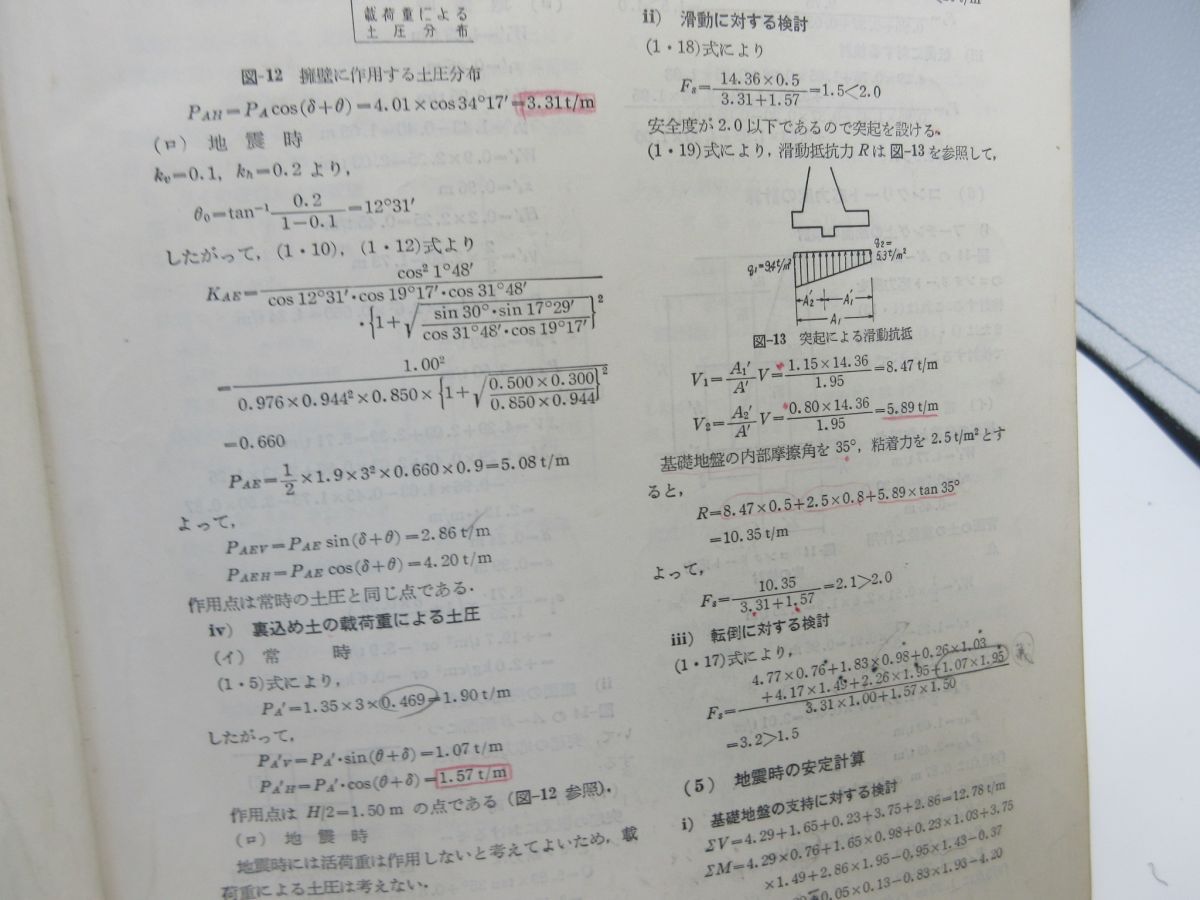 載荷重による
土圧分布
図-12 擁壁に作用する土圧分布
P_AH=P_A cos(δ+θ)=4.01×cos34°17′=3.31t/m
(ロ) 地震時
k_v=0.1, k_h=0.2より,
θ₀=tan⁻¹ 0.2/(1−0.1)=12°31′
したがって, (1・10), (1・12)式より
K_AE= cos² 1°48′
cos 12°31′・cos 19°17′・cos 31°48′
・{1+√(sin 30°・sin 17°29′/cos 31°48′・cos 19°17′)}²
= 1.00²
0.976×0.944²×0.850×{1+√(0.500×0.300/0.850×0.944)}²
=0.660
P_AE=1/2×1.9×3²×0.660×0.9=5.08 t/m
よって,
P_AEV=P_AE sin(δ+θ)=2.86 t/m
P_AEH=P_AE cos(δ+θ)=4.20 t/m
作用点は常時の土圧と同じ点である.
iv) 裏込め土の載荷重による土圧
(イ) 常時
(1・5)式により,
P_A′=1.35×3×0.469=1.90 t/m
したがって,
P_A′V=P_A′・sin(θ+δ)=1.07 t/m
P_A′H=P_A′・cos(θ+δ)=1.57 t/m
作用点は H/2=1.50 m の点である (図-12 参照).
(ロ) 地震時
地震時には活荷重は作用しないと考えてよいため, 載
荷重による土圧は考えない.
ii) 滑動に対する検討
(1・18)式により
F_s=14.36×0.5/(3.31+1.57)=1.5<2.0
安全度が2.0以下であるので突起を設ける.
(1・19)式により, 滑動抵抗力 R は図-13を参照して,
q₁=9.4t/m²
q₂=
5.3t/m²
A₂′ A₁′
A₁
図-13 突起による滑動抗抵
V₁=A₁′/A′ V=1.15×14.36/1.95=8.47 t/m
V₂=A₂′/A′ V=0.80×14.36/1.95=5.89 t/m
基礎地盤の内部摩擦角を 35°, 粘着力を 2.5 t/m² とす
ると,
R=8.47×0.5+2.5×0.8+5.89×tan 35°
=10.35 t/m
よって,
F_s=10.35/(3.31+1.57)=2.1>2.0
iii) 転倒に対する検討
(1・17)式により,
4.77×0.76+1.83×0.98+0.26×1.03
+4.17×1.49+2.26×1.95+1.07×1.95
F_s= 3.31×1.00+1.57×1.50
=3.2>1.5
(5) 地震時の安定計算
i) 基礎地盤の支持に対する検討
ΣV=4.29+1.65+0.23+3.75+2.86=12.78 t/m
ΣM=4.29×0.76+1.65×0.98+0.23×1.03+3.75
×1.49+2.86×1.95−0.95×1.43−0.37
0.05×0.13−0.83×1.93−4.20